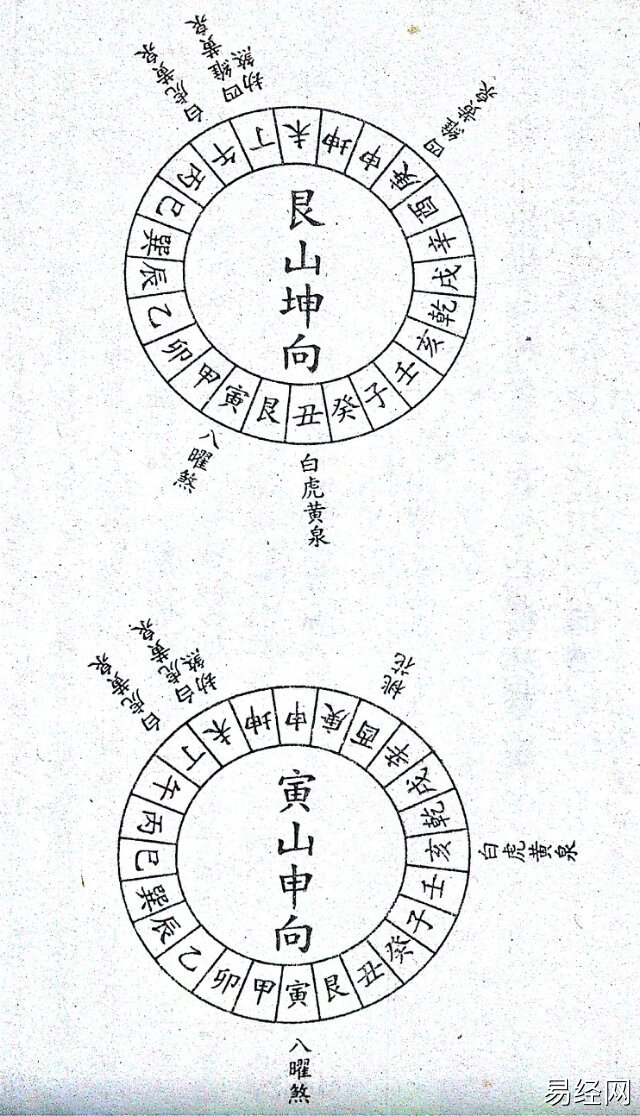 白虎黄泉
劫煞
四維黄泉
四維黄泉
未坤申庚酉辛戌乾亥壬子癸丑艮寅甲卯乙辰巽巳丙午丁
艮山坤向
八曜煞
白虎黄泉
白虎黄泉
劫煞
白虎黄泉
桃花
申庚酉辛戌乾亥壬子癸丑艮寅甲卯乙辰巽巳丙午丁未坤
寅山申向
白虎黄泉
八曜煞
易经网